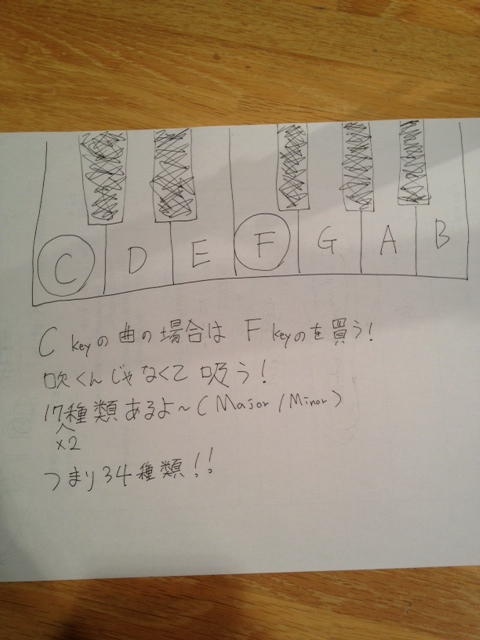 C D E F G A B
C keyの曲の場合は F keyのを買う!
吹くんじゃなくて 吸う!
17種類あるよ～(Major/Minor)
×2
つまり34種類!!